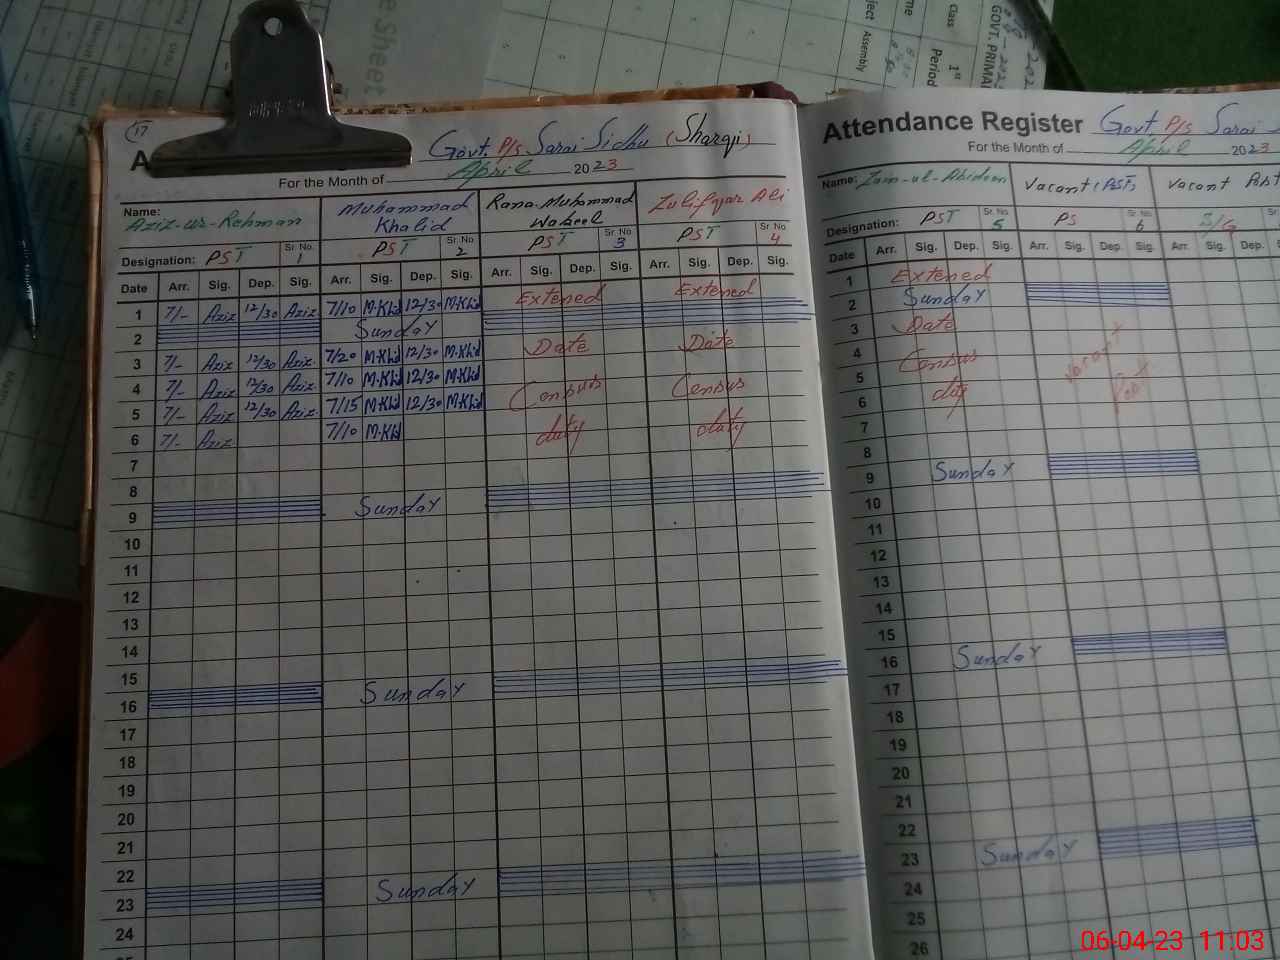 e Sheet
ject Assembly
me
Class
Period
1st
GOVT. PRIMA
17
A
Govt. P/s Sarai Sidhu (Sharqi)
For the Month of April 2023
Name: Aziz-ur-Rehman
Muhammad Khalid
Rana Muhammad Wakeel
Zulifqar Ali
Designation: PST Sr. No. 1
PST Sr. No. 2
PST Sr. No. 3
PST Sr. No. 4
Date Arr. Sig. Dep. Sig. Arr. Sig. Dep. Sig. Arr. Sig. Dep. Sig. Arr. Sig. Dep. Sig.
1 7/- Aziz 12/30 Aziz 7/10 M.Khld 12/30 M.Khld Extened Extened
2 Sunday
3 7/- Aziz 12/30 Aziz 7/20 M.Khld 12/30 M.Khld Date Date
4 7/- Aziz 12/30 Aziz 7/10 M.Khld 12/30 M.Khld Census Census
5 7/- Aziz 12/30 Aziz 7/15 M.Khld 12/30 M.Khld
6 7/- Aziz 7/10 M.Khld duty duty
7
8
9 Sunday
10
11
12
13
14
15
16 Sunday
17
18
19
20
21
22
23 Sunday
24
Attendance Register Govt. P/s Sarai S
For the Month of April 2023
Name: Zain-ul-Abideen
Vacant (PST)
Vacant Post
Designation: PST Sr. No. 5
PS Sr. No. 6
Date Arr. Sig. Dep. Sig. Arr. Sig. Dep. Sig. Arr. Sig. Dep.
1 Extened
2 Sunday
3 Date
4 Census
5
6 duty
7
8
9 Sunday
10
11
12
13
14
15
16 Sunday
17
18
19
20
21
22
23 Sunday
24
25
26
06-04-23 11:03